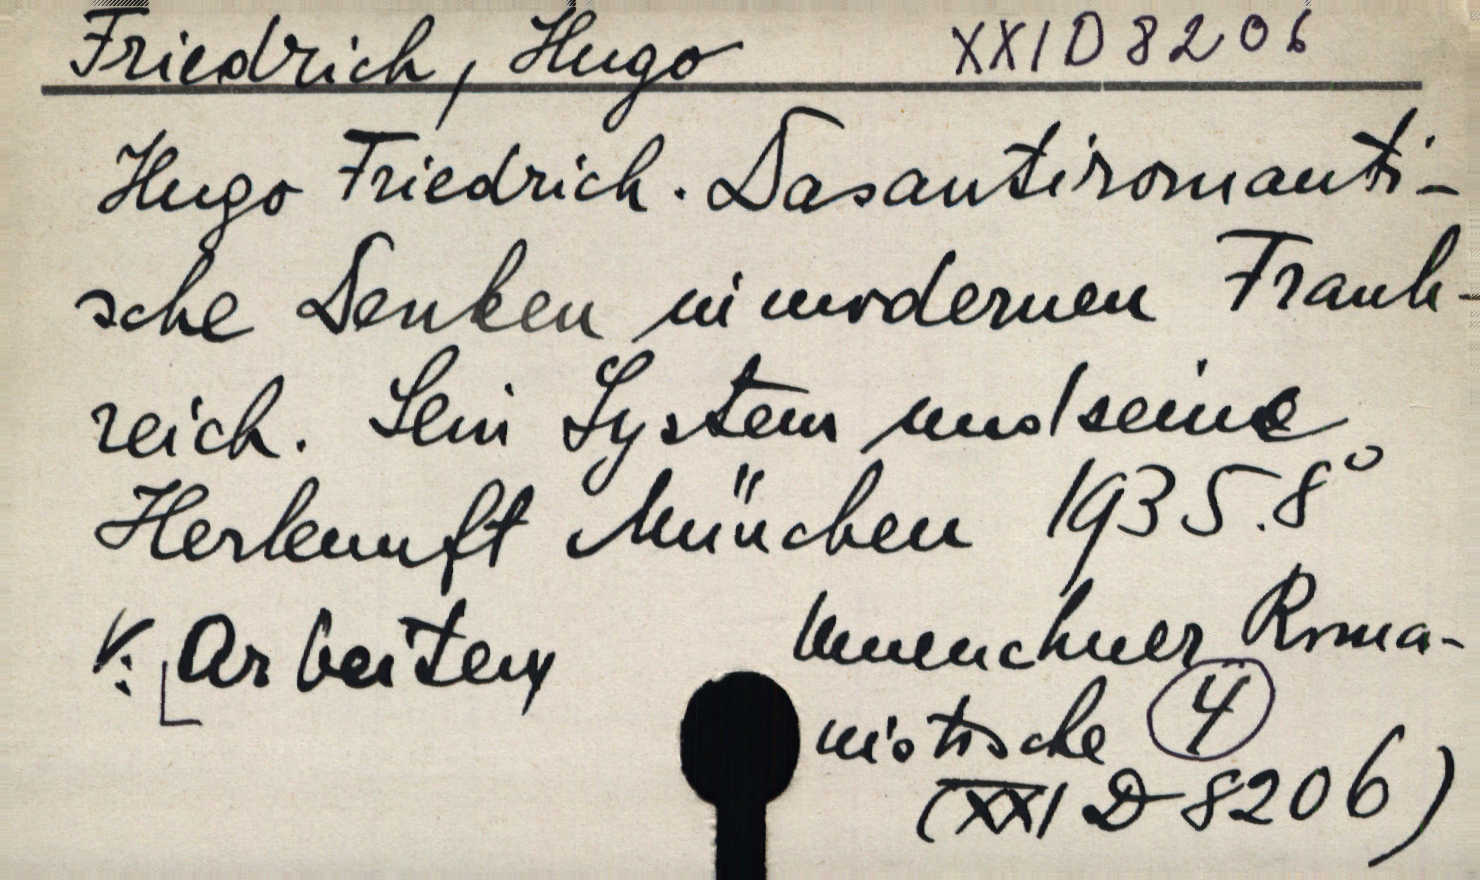 Friedrich, Hugo XXI D 8206
Hugo Friedrich. Das antiromanti-
sche Denken im modernen Frank-
reich. Sein System und seine
Herkunft München 1935. 8°
V: Arbeiten Muenchner Roma-
nistische 4
(XXI D 8206)